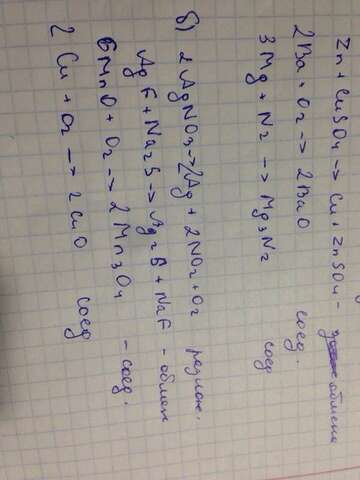 Zn + CuSO4 → Cu + ZnSO4 - обмена
2Ba + O2 → 2BaO соед.
3Mg + N2 → Mg3N2 соед
б) 2AgNO3 → 2Ag + 2NO2 + O2 разлож.
AgF + Na2S → Ag2S + NaF - обмен
6MnO + O2 → 2Mn3O4 - соед.
2Cu + O2 → 2CuO соед